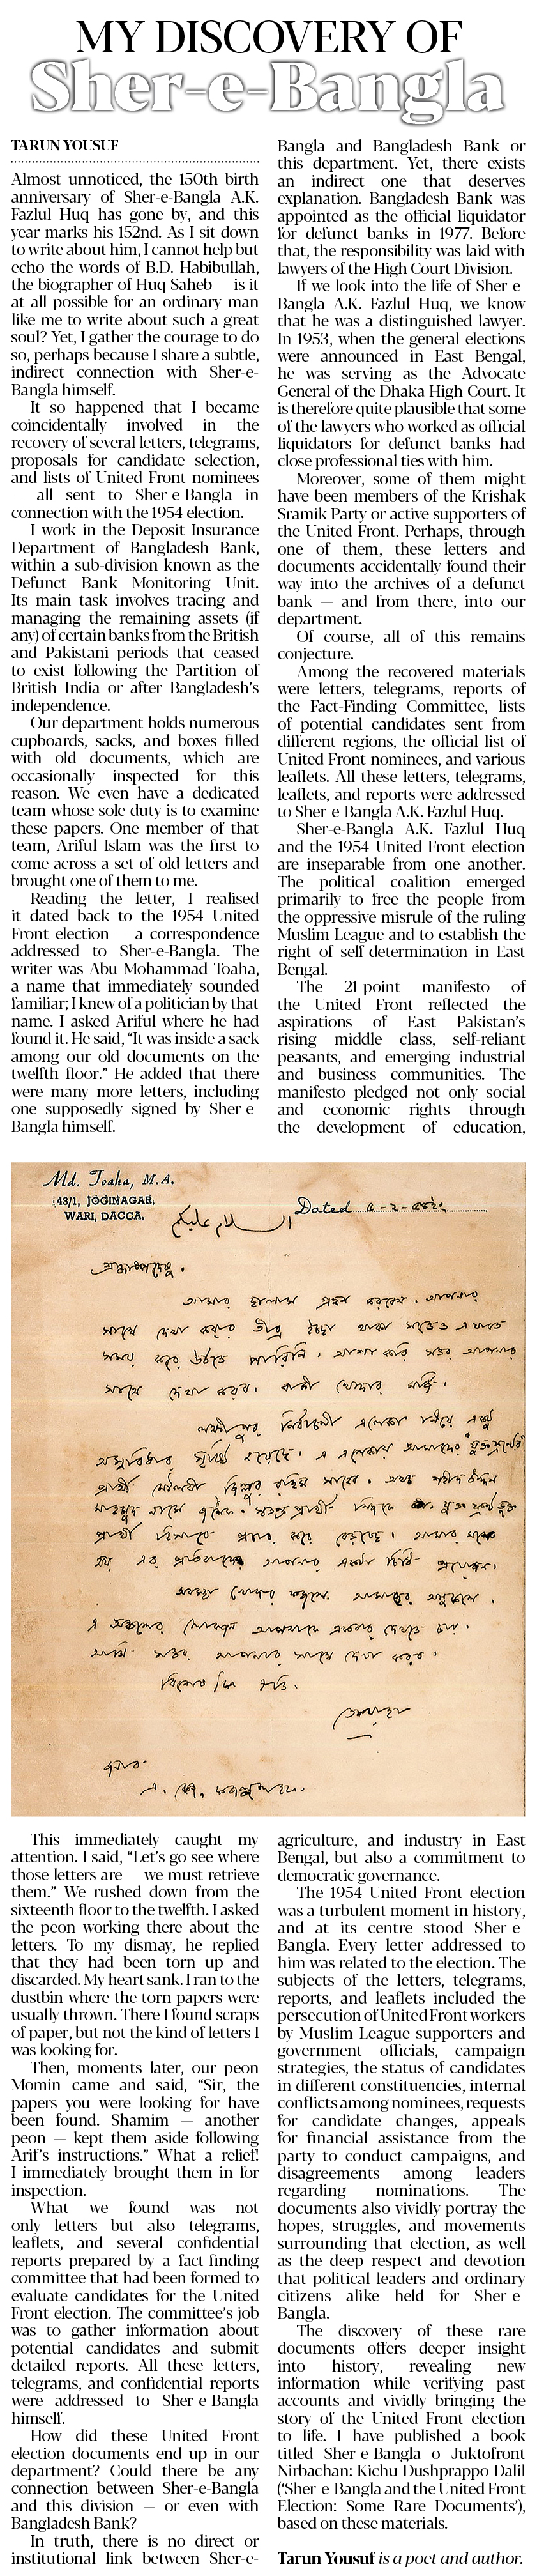 MY DISCOVERY OF
Sher-e-Bangla
TARUN YOUSUF
Almost unnoticed, the 150th birth
anniversary of Sher-e-Bangla A.K.
Fazlul Huq has gone by, and this
year marks his 152nd. As I sit down
to write about him, I cannot help but
echo the words of B.D. Habibullah,
the biographer of Huq Saheb — is it
at all possible for an ordinary man
like me to write about such a great
soul? Yet, I gather the courage to do
so, perhaps because I share a subtle,
indirect connection with Sher-e-
Bangla himself.
It so happened that I became
coincidentally involved in the
recovery of several letters, telegrams,
proposals for candidate selection,
and lists of United Front nominees
— all sent to Sher-e-Bangla in
connection with the 1954 election.
I work in the Deposit Insurance
Department of Bangladesh Bank,
within a sub-division known as the
Defunct Bank Monitoring Unit.
Its main task involves tracing and
managing the remaining assets (if
any) of certain banks from the British
and Pakistani periods that ceased
to exist following the Partition of
British India or after Bangladesh's
independence.
Our department holds numerous
cupboards, sacks, and boxes filled
with old documents, which are
occasionally inspected for this
reason. We even have a dedicated
team whose sole duty is to examine
these papers. One member of that
team, Ariful Islam was the first to
come across a set of old letters and
brought one of them to me.
Reading the letter, I realised
it dated back to the 1954 United
Front election — a correspondence
addressed to Sher-e-Bangla. The
writer was Abu Mohammad Toaha,
a name that immediately sounded
familiar; I knew of a politician by that
name. I asked Ariful where he had
found it. He said, “It was inside a sack
among our old documents on the
twelfth floor.” He added that there
were many more letters, including
one supposedly signed by Sher-e-
Bangla himself.
Bangla and Bangladesh Bank or
this department. Yet, there exists
an indirect one that deserves
explanation. Bangladesh Bank was
appointed as the official liquidator
for defunct banks in 1977. Before
that, the responsibility was laid with
lawyers of the High Court Division.
If we look into the life of Sher-e-
Bangla A.K. Fazlul Huq, we know
that he was a distinguished lawyer.
In 1953, when the general elections
were announced in East Bengal,
he was serving as the Advocate
General of the Dhaka High Court. It
is therefore quite plausible that some
of the lawyers who worked as official
liquidators for defunct banks had
close professional ties with him.
Moreover, some of them might
have been members of the Krishak
Sramik Party or active supporters of
the United Front. Perhaps, through
one of them, these letters and
documents accidentally found their
way into the archives of a defunct
bank — and from there, into our
department.
Of course, all of this remains
conjecture.
Among the recovered materials
were letters, telegrams, reports of
the Fact-Finding Committee, lists
of potential candidates sent from
different regions, the official list of
United Front nominees, and various
leaflets. All these letters, telegrams,
leaflets, and reports were addressed
to Sher-e-Bangla A.K. Fazlul Huq.
Sher-e-Bangla A.K. Fazlul Huq
and the 1954 United Front election
are inseparable from one another.
The political coalition emerged
primarily to free the people from
the oppressive misrule of the ruling
Muslim League and to establish the
right of self-determination in East
Bengal.
The 21-point manifesto of
the United Front reflected the
aspirations of East Pakistan's
rising middle class, self-reliant
peasants, and emerging industrial
and business communities. The
manifesto pledged not only social
and economic rights through
the development of education,
Md. Toaha, M.A.
43/1, JOGINAGAR,
WARI, DACCA.
Dated
السلام عليكم
শ্রদ্ধাস্পদেষু,
আমার ছালাম গ্রহন করবেন। আপনার
সাথে দেখা করার তীব্র ইচ্ছা থাকা সত্তেও এ যাবত
সময় করে উঠতে পারিনি। আশা করি সত্তর আপনার
সাথে দেখা করব। বাকী খোদার মর্জি।
লক্ষ্মীপুর নির্বাচনী এলেকা নিয়ে একটু
অসুবিধার সৃষ্টি হয়েছে। এ এলেকায় আমাদের
প্রার্থী মৌলবী সাহেব। অথচ
নামে প্রার্থী
প্রার্থী হিসাবে প্রচার করে বেড়াচ্ছে। আমার মনে
হয় এর প্রতিবাদে আপনার একটা চিঠি প্রয়োজন।
অবস্থা খোদার ফজলে আমাদের অনুকূলে।
এ অঞ্চলের লোকজন আপনাকে একবার দেখতে চায়।
আমি সত্তর আপনার সাথে দেখা করব।
বিশেষ কি ইতি।
তোয়াহা
জনাব
এ, কে, ফজলুল হক।
This immediately caught my
attention. I said, “Let's go see where
those letters are — we must retrieve
them.” We rushed down from the
sixteenth floor to the twelfth. I asked
the peon working there about the
letters. To my dismay, he replied
that they had been torn up and
discarded. My heart sank. I ran to the
dustbin where the torn papers were
usually thrown. There I found scraps
of paper, but not the kind of letters I
was looking for.
Then, moments later, our peon
Momin came and said, “Sir, the
papers you were looking for have
been found. Shamim — another
peon — kept them aside following
Arif's instructions.” What a relief!
I immediately brought them in for
inspection.
What we found was not
only letters but also telegrams,
leaflets, and several confidential
reports prepared by a fact-finding
committee that had been formed to
evaluate candidates for the United
Front election. The committee's job
was to gather information about
potential candidates and submit
detailed reports. All these letters,
telegrams, and confidential reports
were addressed to Sher-e-Bangla
himself.
How did these United Front
election documents end up in our
department? Could there be any
connection between Sher-e-Bangla
and this division — or even with
Bangladesh Bank?
In truth, there is no direct or
institutional link between Sher-e-
agriculture, and industry in East
Bengal, but also a commitment to
democratic governance.
The 1954 United Front election
was a turbulent moment in history,
and at its centre stood Sher-e-
Bangla. Every letter addressed to
him was related to the election. The
subjects of the letters, telegrams,
reports, and leaflets included the
persecution of United Front workers
by Muslim League supporters and
government officials, campaign
strategies, the status of candidates
in different constituencies, internal
conflicts among nominees, requests
for candidate changes, appeals
for financial assistance from the
party to conduct campaigns, and
disagreements among leaders
regarding nominations. The
documents also vividly portray the
hopes, struggles, and movements
surrounding that election, as well
as the deep respect and devotion
that political leaders and ordinary
citizens alike held for Sher-e-
Bangla.
The discovery of these rare
documents offers deeper insight
into history, revealing new
information while verifying past
accounts and vividly bringing the
story of the United Front election
to life. I have published a book
titled Sher-e-Bangla o Juktofront
Nirbachan: Kichu Dushprappo Dalil
(‘Sher-e-Bangla and the United Front
Election: Some Rare Documents’),
based on these materials.
Tarun Yousuf is a poet and author.